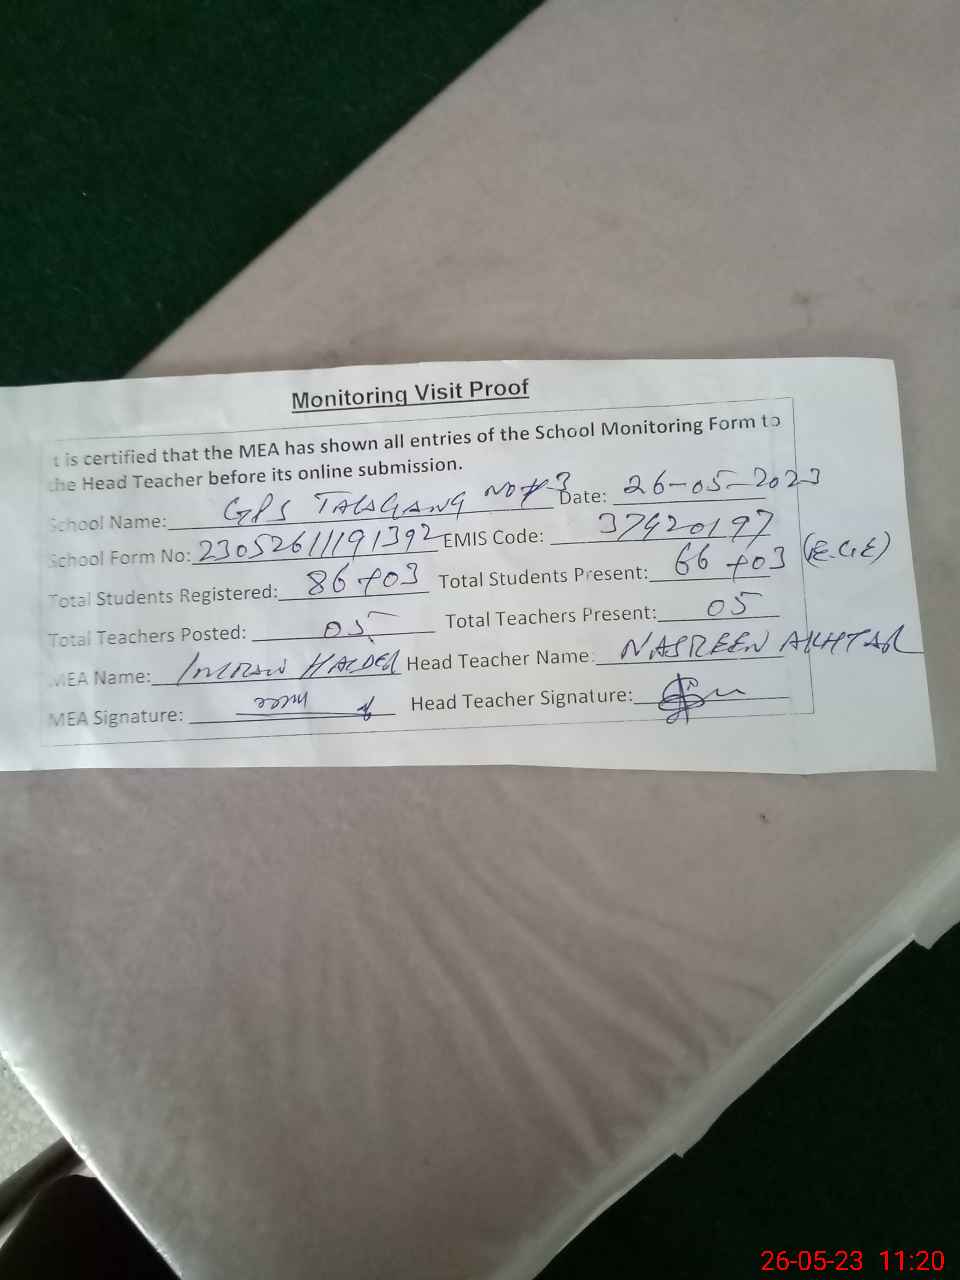 Monitoring Visit Proof
t is certified that the MEA has shown all entries of the School Monitoring Form to
the Head Teacher before its online submission.
School Name: GPS TALAGANG NO # 3 Date: 26-05-2023
School Form No: 23052611191392 EMIS Code: 37420197
Total Students Registered: 86+03 Total Students Present: 66+03 (E.C.E)
Total Teachers Posted: 05 Total Teachers Present: 05
MEA Name: IMRAN HAIDER Head Teacher Name: NASREEN AKHTAR
MEA Signature: Head Teacher Signature:
26-05-23 11:20